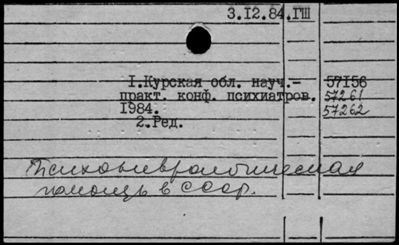 3.12.84.ГШ
1.Курская обл. науч.- 57156
практ. конф. психиатров. 57261
1984. 57262
2.Ред.
Психоневрологическая
помощь в СССР.